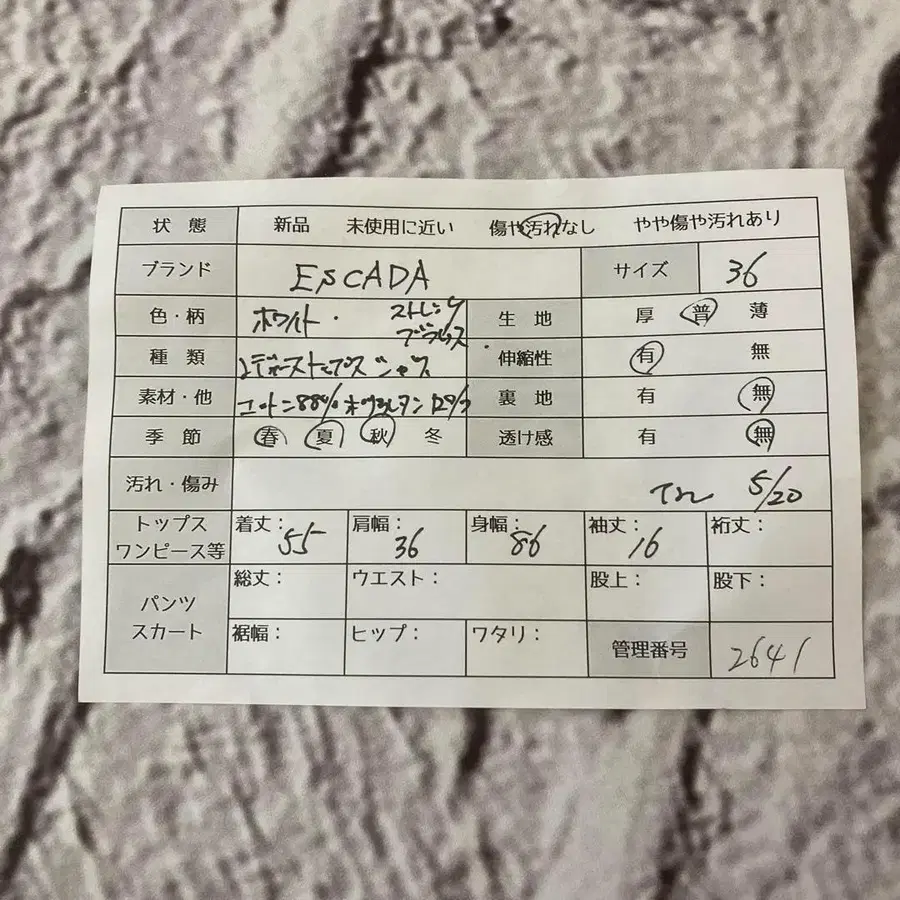 状態 新品 未使用に近い 傷や汚れなし やや傷や汚れあり
ブランド ESCADA サイズ 36
色・柄 ホワイト・ 生地 厚 普 薄
種類 伸縮性 有 無
素材・他 コットン88% ポリウレタン12% 裏地 有 無
季節 春 夏 秋 冬 透け感 有 無
汚れ・傷み 5/20
トップス ワンピース等 着丈: 55 肩幅: 36 身幅: 86 袖丈: 16 裄丈:
パンツ スカート 総丈: ウエスト: 股上: 股下:
裾幅: ヒップ: ワタリ: 管理番号 2641